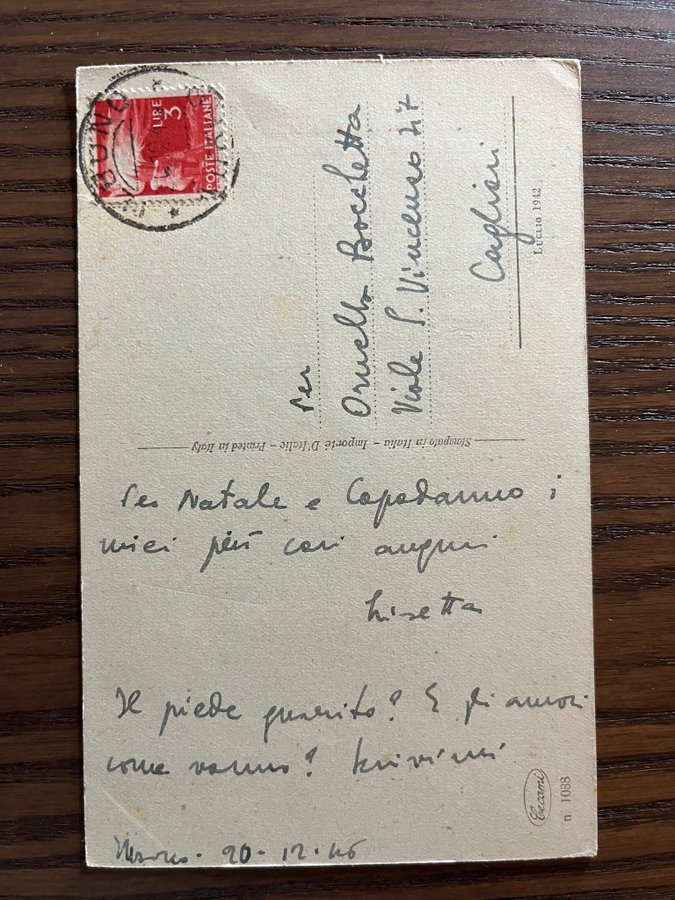 LIRE
3
POSTE ITALIANE
Per
Ornella Bocchetta
Viale S. Vincenzo
Cagliari
LUGLIO 1942
Stampato in Italia - Importé D'Italie - Printed in Italy
Per Natale e Capodanno i
miei più cari auguri
Lisetta
Il piede guarito? E gli amori
come vanno? Scrivimi
20-12-46
Cecami
n 1088